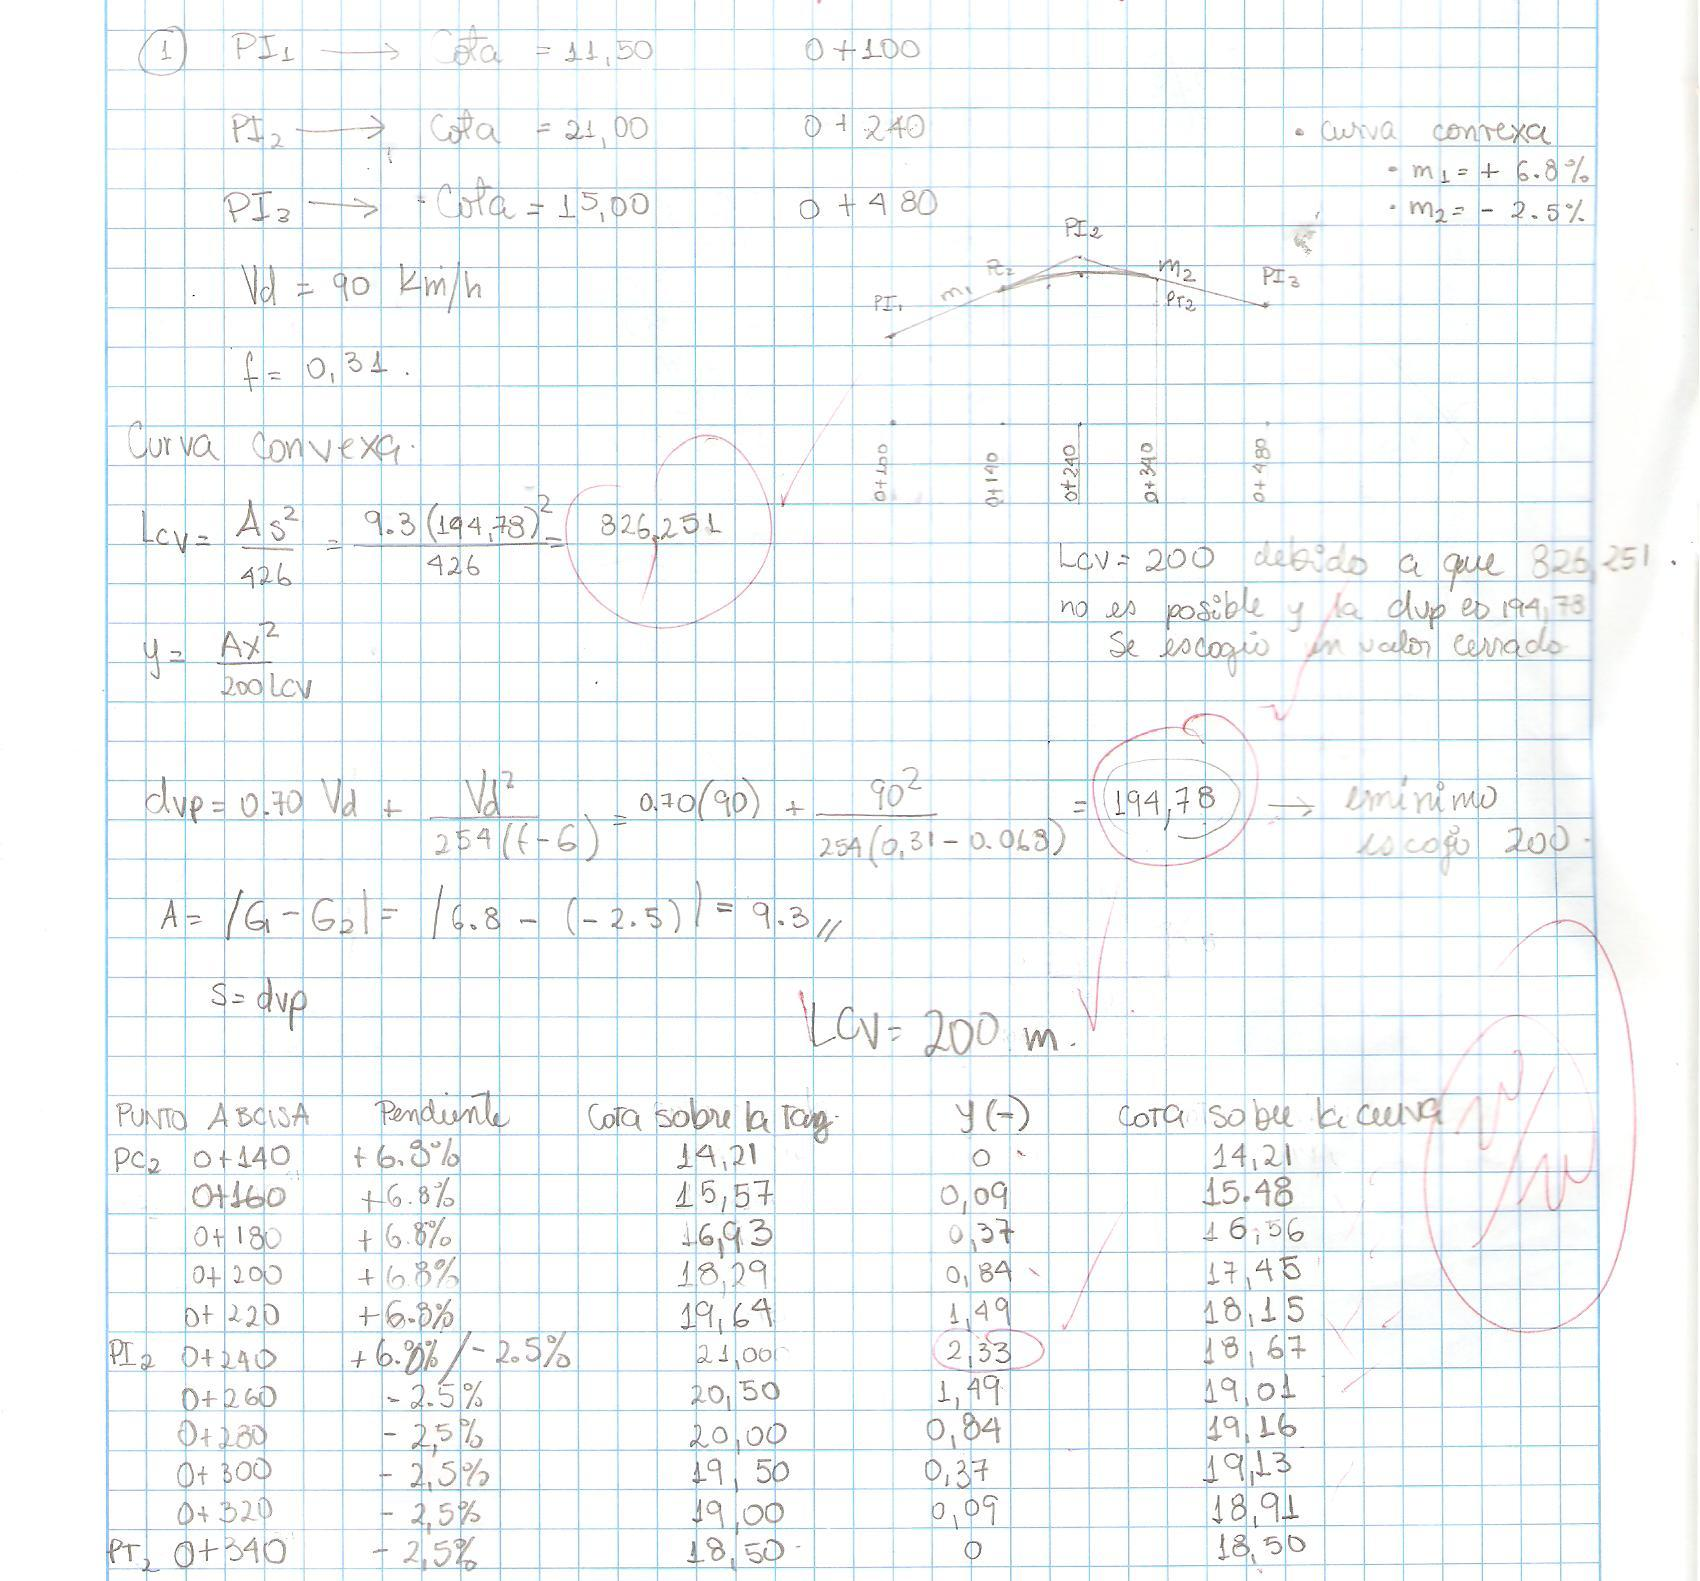 1 PI1 → Cota = 11,50 0+100
PI2 → Cota = 21,00 0+240
• curva convexa
• m1 = + 6.8%
PI3 → Cota = 15,00 0+480
• m2 = - 2.5%
PI2
Vd = 90 Km/h
PI1 m1 PC2 m2 PT2 PI3
f = 0,31.
Curva convexa.
0+100 0+140 0+240 0+340 0+480
Lcv = As²/426 = 9.3(194,78)²/426 = 826,251
Lcv = 200 debido a que 826,251.
no es posible y la dvp es 194,78
Se escogio un valor cerrado
y = Ax²/200Lcv
dvp = 0.70 Vd + Vd²/254(f-G) = 0.70(90) + 90²/254(0,31-0.068) = 194,78 → minimo
escojo 200.
A = |G1 - G2| = |6.8 - (-2.5)| = 9.3//
S = dvp
LCV = 200 m.
PUNTO ABCISA Pendiente Cota sobre la Tang. y(-) Cota sobre la curva
PC2 0+140 +6.8% 14,21 0 14,21
0+160 +6.8% 15,57 0,09 15.48
0+180 +6.8% 16,93 0,37 16,56
0+200 +6.8% 18,29 0,84 17,45
0+220 +6.8% 19,64 1,49 18,15
PI2 0+240 +6.8% / -2.5% 21,00 2,33 18,67
0+260 -2.5% 20,50 1,49 19,01
0+280 -2,5% 20,00 0,84 19,16
0+300 -2,5% 19,50 0,37 19,13
0+320 -2,5% 19,00 0,09 18,91
PT2 0+340 -2,5% 18,50 0 18,50